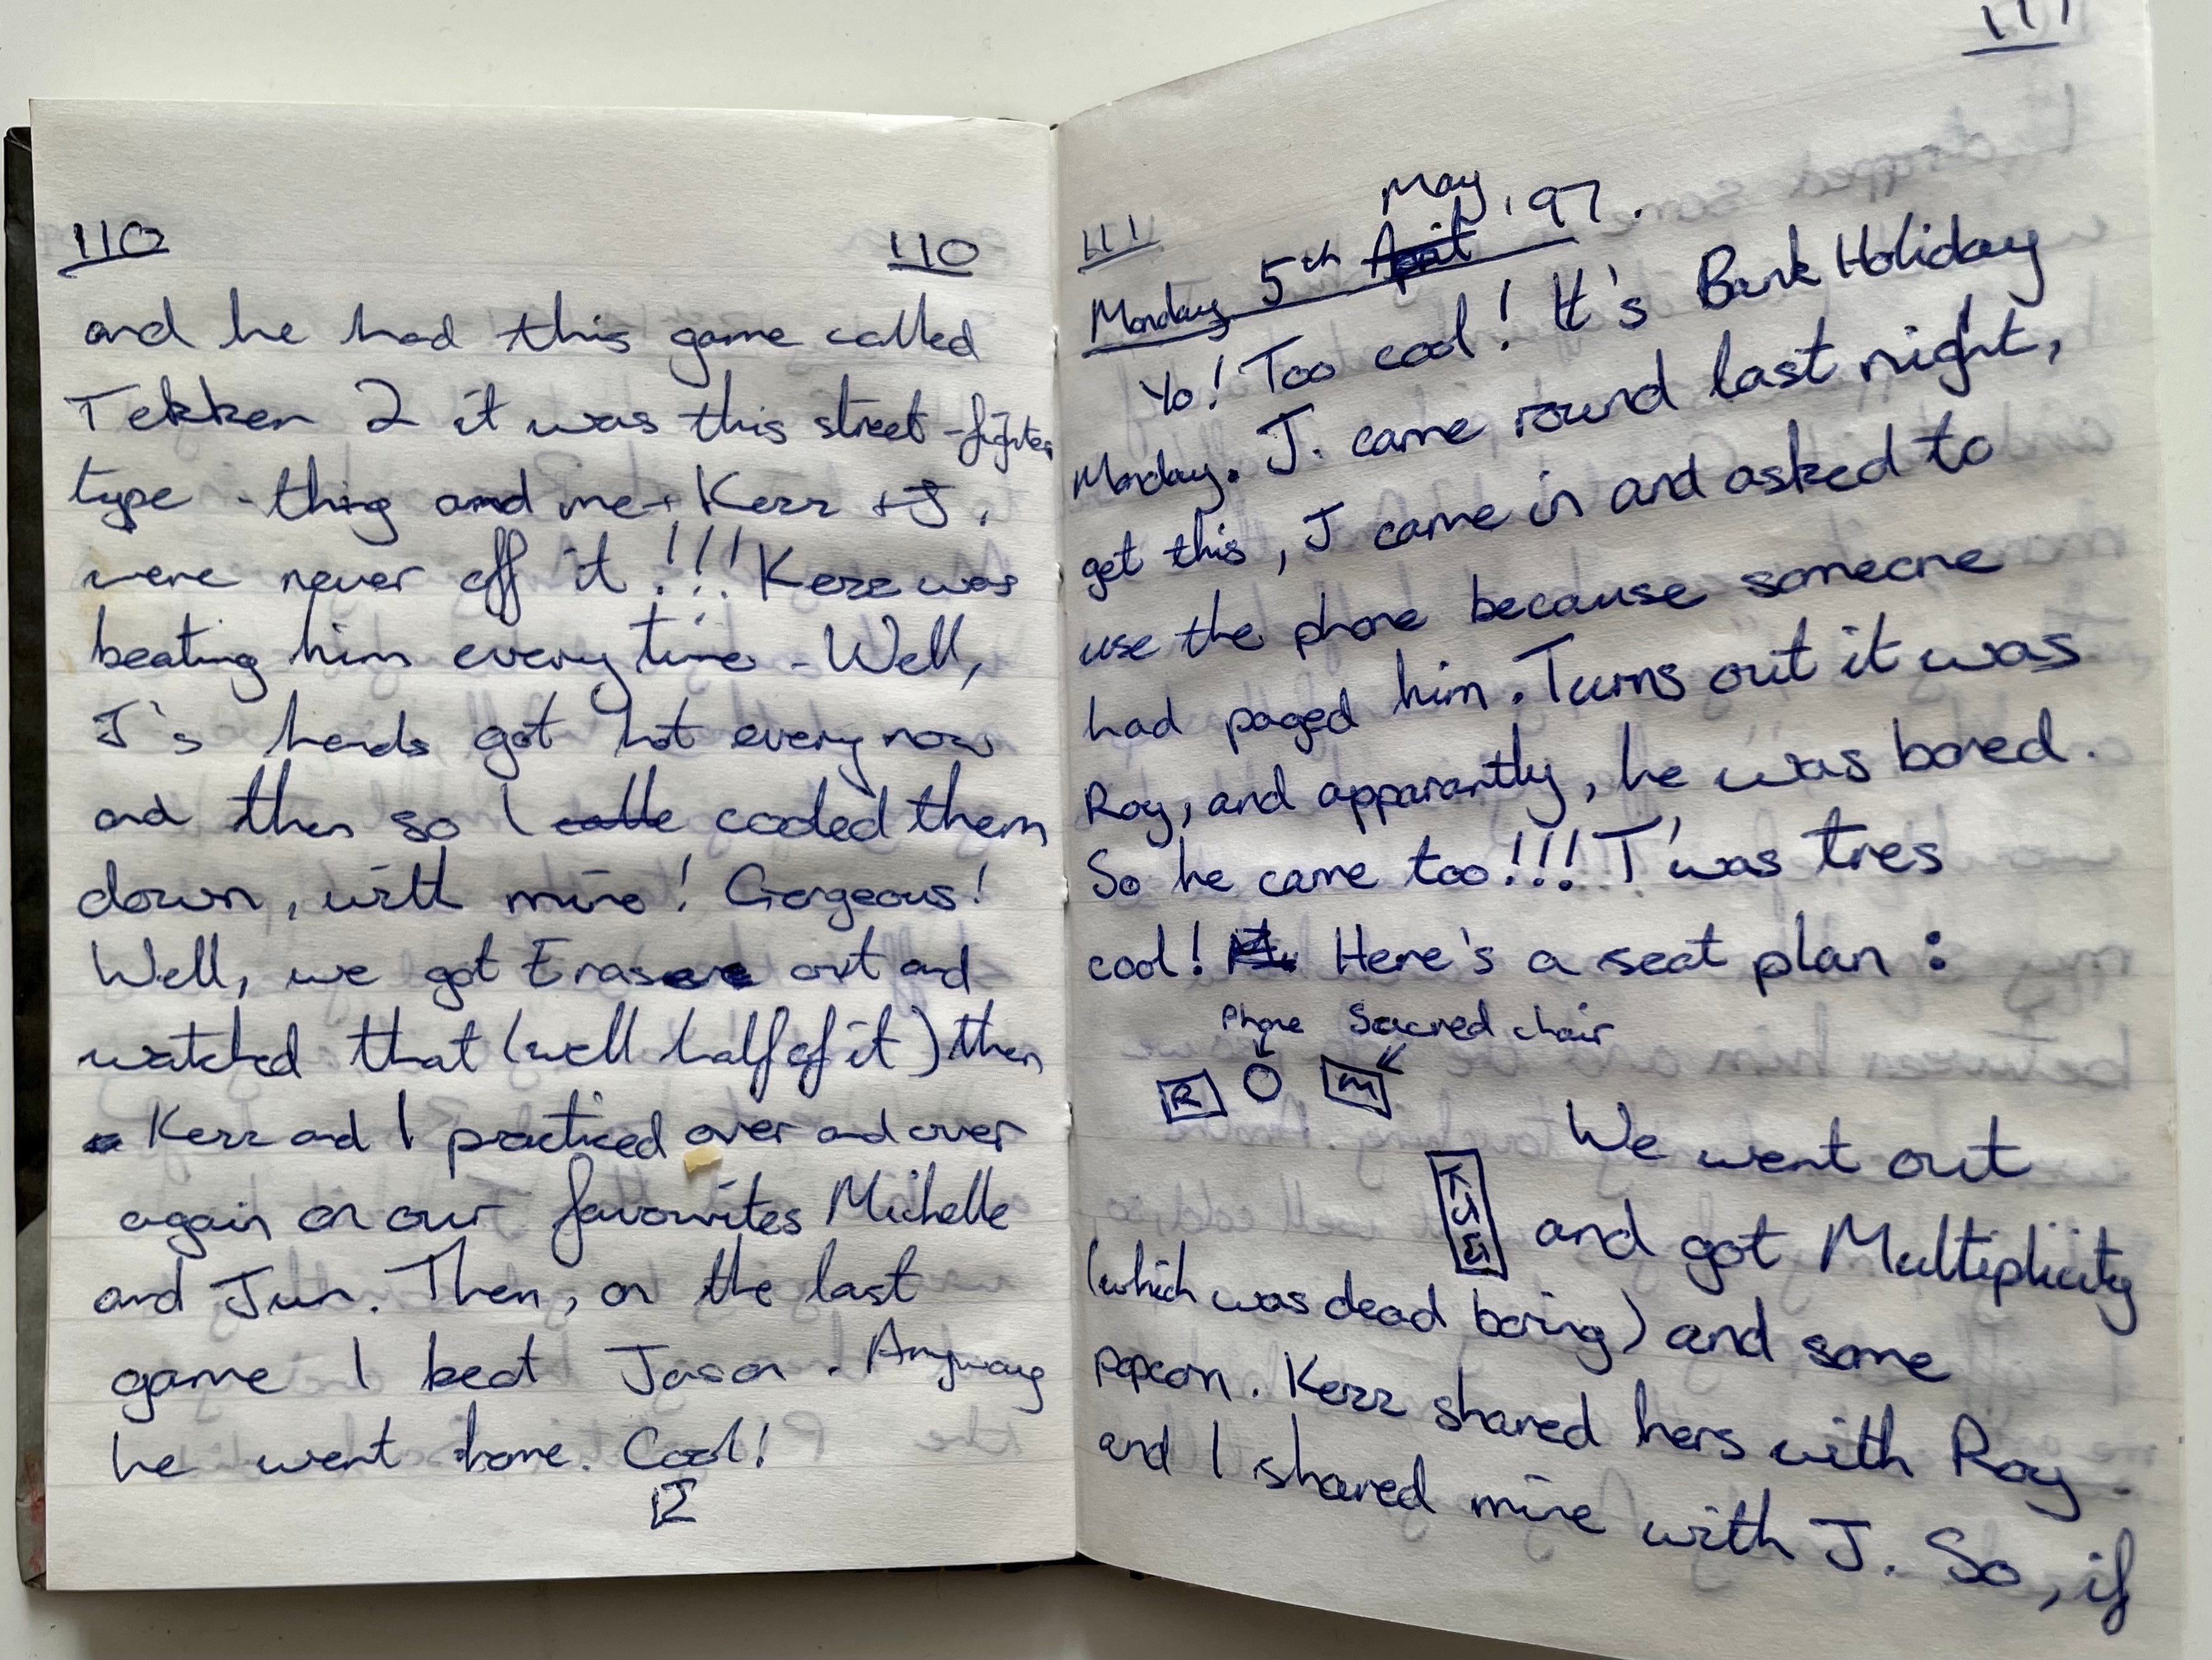 110 110
and he had this game called
Tekken 2 it was this street-fighter
type-thing and me + Kerr + J.
were never off it!!! Kerr was
beating him every time - Well,
J's hands got hot every now
and then so I cooled them
down, with mine! Gorgeous!
Well, we got Eraser out and
watched that (well half of it) then
Kerr and I practiced over and over
again on our favourites Michelle
and Jun. Then, on the last
game I beat Jason. Anyway
he went home. Cool!
111
111
May
Monday 5th April '97.
Yo! Too cool! It's Bank Holiday
Monday. J. came round last night,
get this, J came in and asked to
use the phone because someone
had paged him. Turns out it was
Roy, and apparantly, he was bored.
So he came too!!! T'was tres
cool! Here's a seat plan:
Phone Sacred chair
R M
We went out
K J E
and got Multiplicity
(which was dead boring) and some
popcorn. Kerr shared hers with Roy
and I shared mine with J. So, if